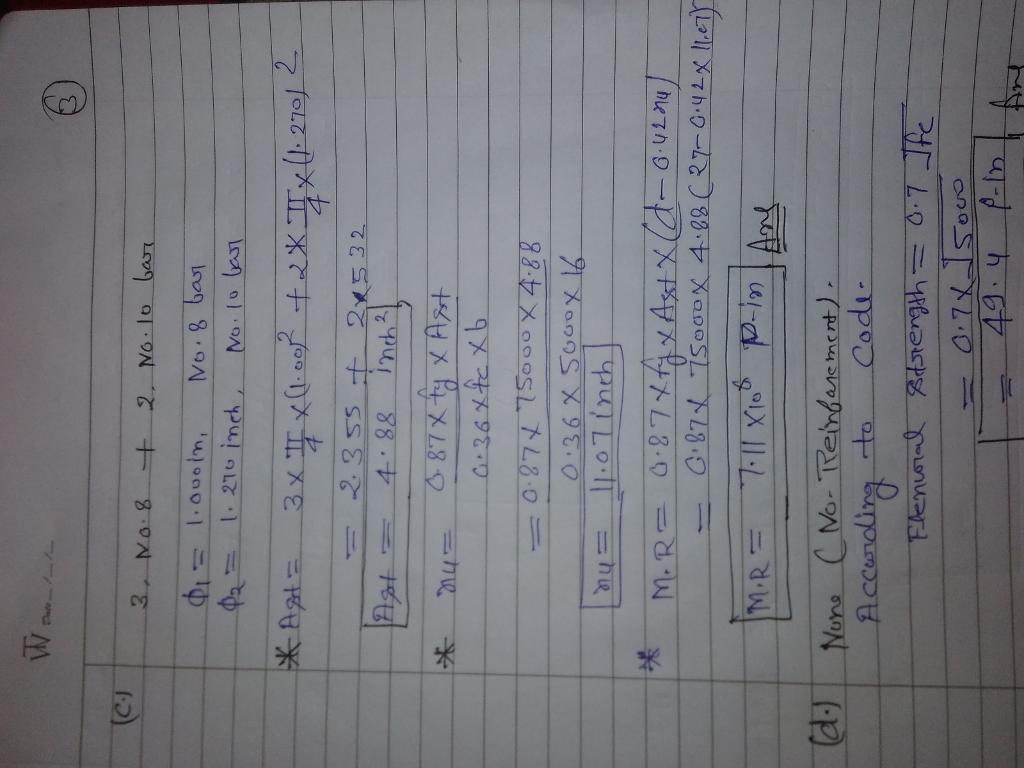 W
(3)
(c.) 3, No.8 + 2, No.10 bar
ϕ1 = 1.000in, No.8 bar
ϕ2 = 1.270 inch, No.10 bar
* Ast = 3 × π/4 × (1.00)² + 2 × π/4 × (1.270)2
= 2.355 + 2×532
Ast = 4.88 inch²
* xu = 0.87 × fy × Ast
0.36 × fc × b
= 0.87 × 75000 × 4.88
0.36 × 5000 × 16
xu = 11.07 inch
* M.R = 0.87 × fy × Ast × (d - 0.42xu)
= 0.87 × 75000 × 4.88 (27 - 0.42 × 11.07)
M.R = 7.11 × 10⁶ P-in Ans
(d.) None (No. Reinforcement).
According to Code.
Flexural strength = 0.7 √fc
= 0.7 × √5000
= 49.4 P-in Ans